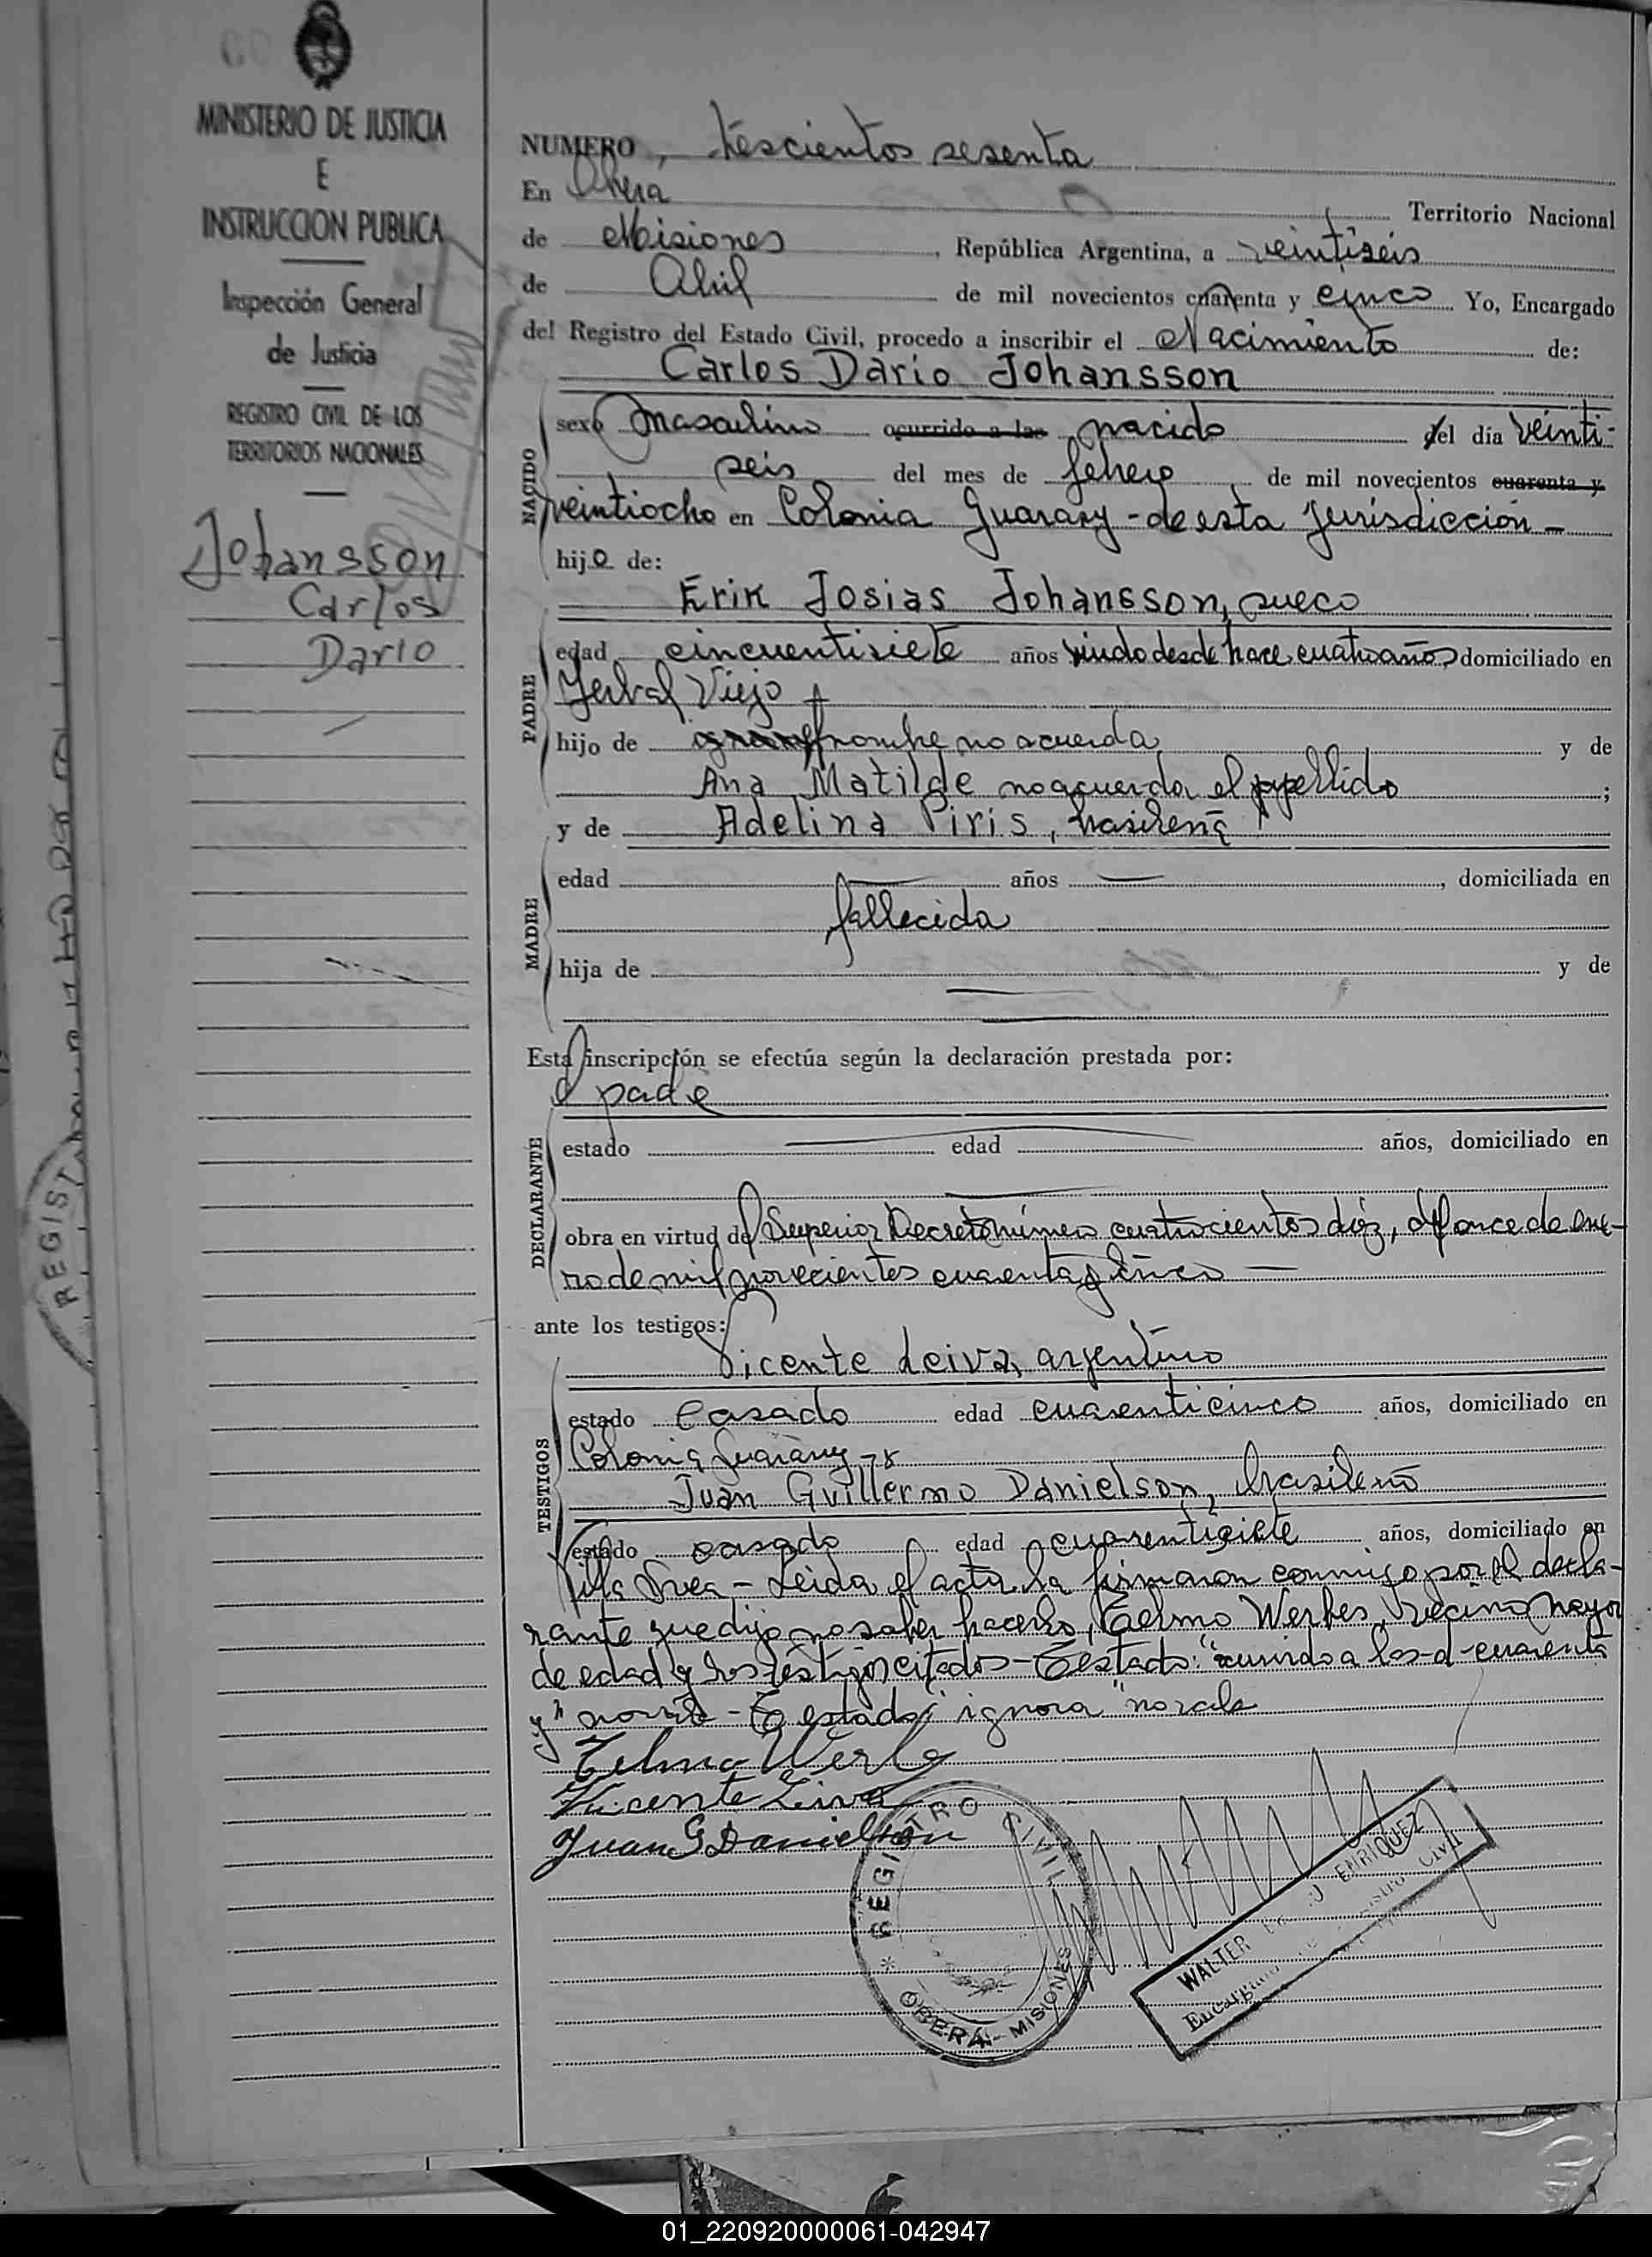 MINISTERIO DE JUSTICIA
E
INSTRUCCION PUBLICA
Inspección General
de Justicia
REGISTRO CIVIL DE LOS
TERRITORIOS NACIONALES
Johansson
Carlos
Dario
NUMERO, trescientos sesenta
En Oberá Territorio Nacional
de Misiones, República Argentina, a veintiseis
de Abril de mil novecientos cuarenta y cinco Yo, Encargado
del Registro del Estado Civil, procedo a inscribir el Nacimiento de:
Carlos Dario Johansson
NACIDO
sexo Masculino ocurrido a las nacido del día veinti-
seis del mes de febrero de mil novecientos cuarenta y
veintiocho en Colonia Guarany - de esta jurisdicción -
hijo de:
Erik Josias Johansson, sueco
PADRE
edad cincuentisiete años viudo desde hace cuatro años domiciliado en
Yerbal Viejo
hijo de nombre no acuerda y de
Ana Matilde no acuerda el apellido;
y de Adelina Piris, brasilena
MADRE
edad años, domiciliada en
fallecida
hija de y de
Esta inscripción se efectúa según la declaración prestada por:
el padre
DECLARANTE
estado edad años, domiciliado en
obra en virtud del Superior Decreto número cuatrocientos diez, del once de ene-
ro de mil novecientos cuarenta y cinco -
ante los testigos:
Vicente Leiva, argentino
TESTIGOS
estado Casado edad cuarenticinco años, domiciliado en
Colonia Guarany - y
Juan Guillermo Danielson, brasileno
estado casado edad cuarentisiete años, domiciliado en
Villa Svea - Leida el acta la firmaron conmigo por el decla-
rante que dijo no saber hacerlo, Telmo Werles, vecino mayor
de edad y los testigos citados - Testado: "ocurrido a las - d - cuarenta
y" no vale - Testado: "ignora" no vale
Telmo Werle
Vicente Leiva
Juan G Danielson
REGISTRO CIVIL
* OBERÁ - MISIONES
WALTER J ENRIQUEZ
Encargado Registro Civil
REGIST
01_220920000061-042947